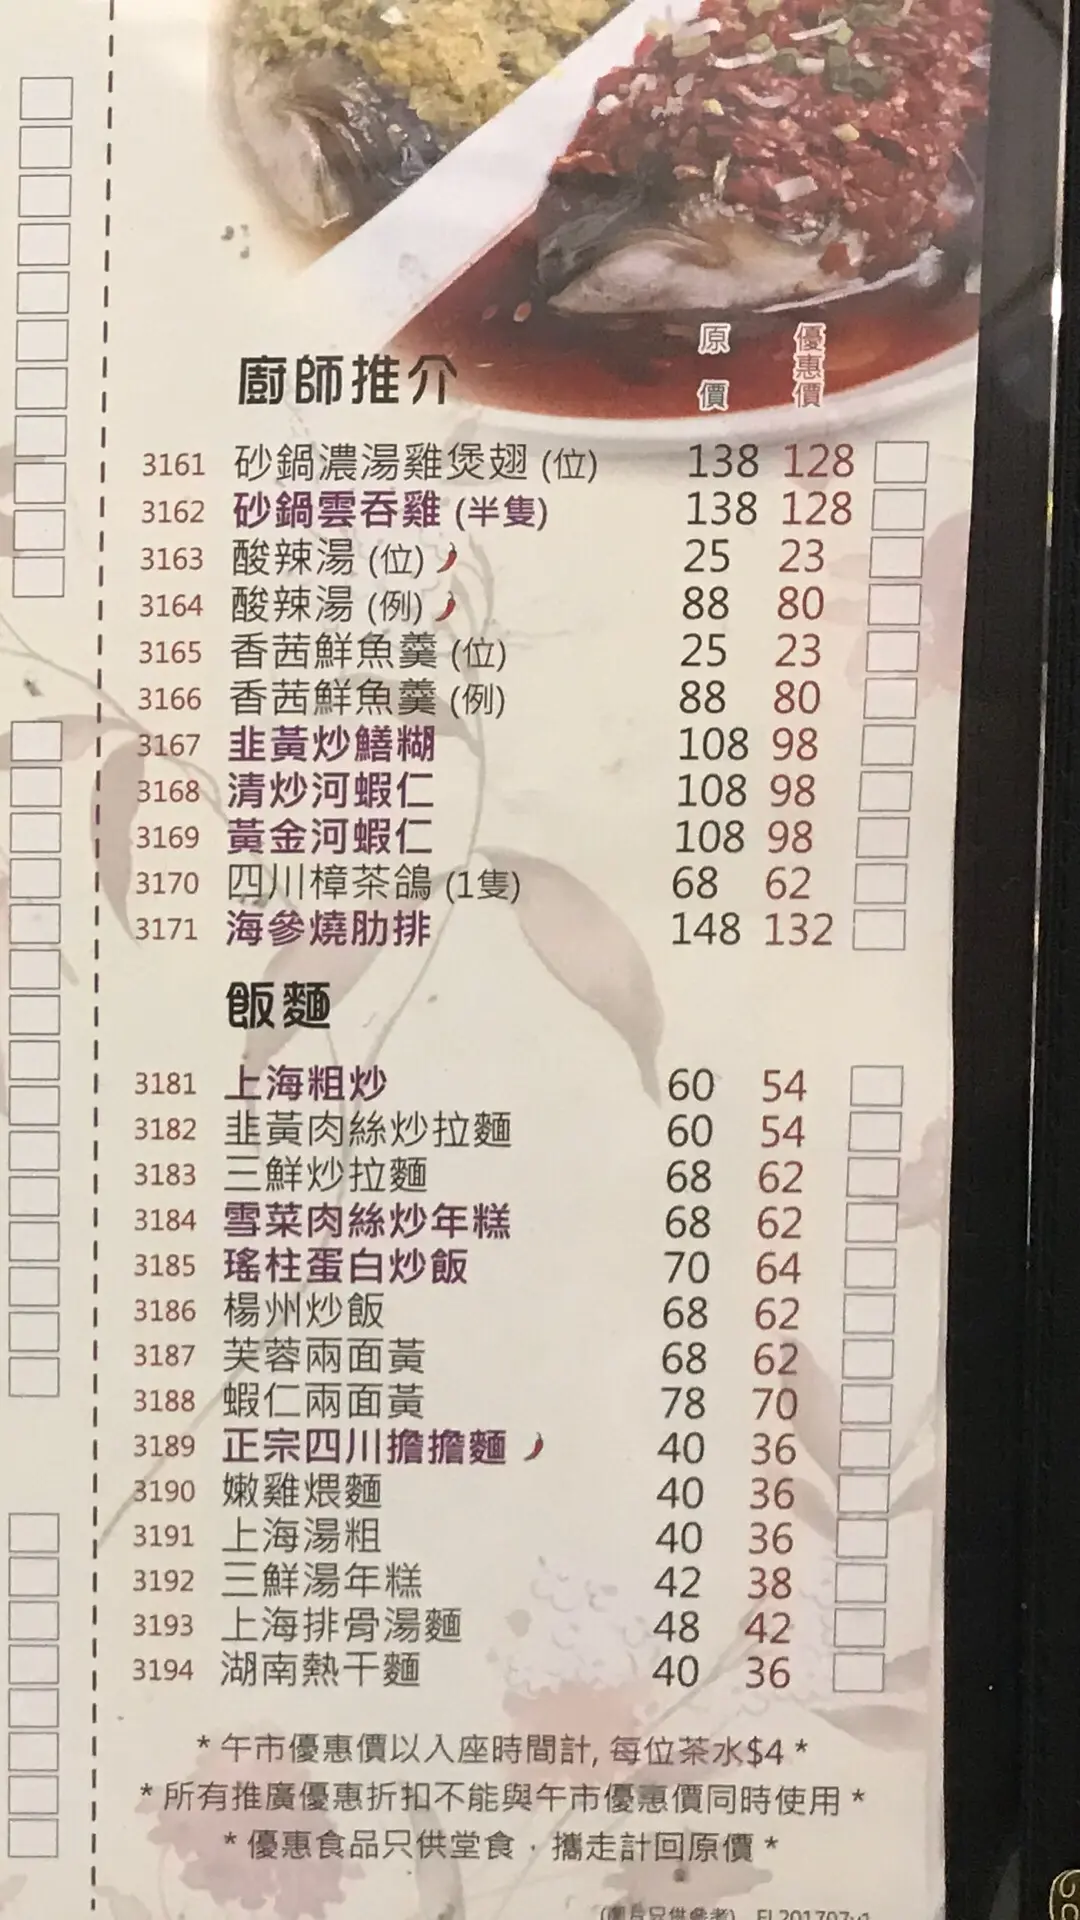 廚師推介 原價 優惠價
3161 砂鍋濃湯雞煲翅 (位) 138 128
3162 砂鍋雲吞雞 (半隻) 138 128
3163 酸辣湯 (位) 25 23
3164 酸辣湯 (例) 88 80
3165 香茜鮮魚羹 (位) 25 23
3166 香茜鮮魚羹 (例) 88 80
3167 韭黃炒鱔糊 108 98
3168 清炒河蝦仁 108 98
3169 黃金河蝦仁 108 98
3170 四川樟茶鴿 (1隻) 68 62
3171 海參燒肋排 148 132
飯麵
3181 上海粗炒 60 54
3182 韭黃肉絲炒拉麵 60 54
3183 三鮮炒拉麵 68 62
3184 雪菜肉絲炒年糕 68 62
3185 瑤柱蛋白炒飯 70 64
3186 楊州炒飯 68 62
3187 芙蓉兩面黃 68 62
3188 蝦仁兩面黃 78 70
3189 正宗四川擔擔麵 40 36
3190 嫩雞煨麵 40 36
3191 上海湯粗 40 36
3192 三鮮湯年糕 42 38
3193 上海排骨湯麵 48 42
3194 湖南熱干麵 40 36
* 午市優惠價以入座時間計, 每位茶水$4 *
* 所有推廣優惠折扣不能與午市優惠價同時使用 *
* 優惠食品只供堂食．攜走計回原價 *
(圖片只供參考) FL201707v1